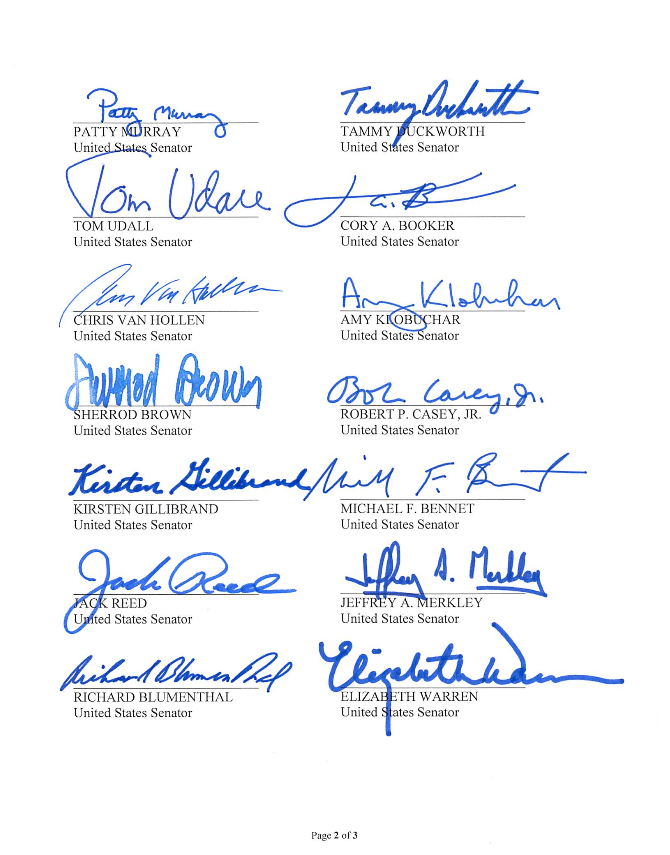 Patty Murray
PATTY MURRAY
United States Senator
Tammy Duckworth
TAMMY DUCKWORTH
United States Senator
Tom Udall
TOM UDALL
United States Senator
CORY A. BOOKER
United States Senator
Chris Van Hollen
CHRIS VAN HOLLEN
United States Senator
Amy Klobuchar
AMY KLOBUCHAR
United States Senator
Sherrod Brown
SHERROD BROWN
United States Senator
Bob Casey, Jr.
ROBERT P. CASEY, JR.
United States Senator
Kirsten Gillibrand
KIRSTEN GILLIBRAND
United States Senator
F.
MICHAEL F. BENNET
United States Senator
Jack Reed
JACK REED
United States Senator
Jeffrey A. Merkley
JEFFREY A. MERKLEY
United States Senator
Richard Blumenthal
RICHARD BLUMENTHAL
United States Senator
Elizabeth Warren
ELIZABETH WARREN
United States Senator
Page 2 of 3